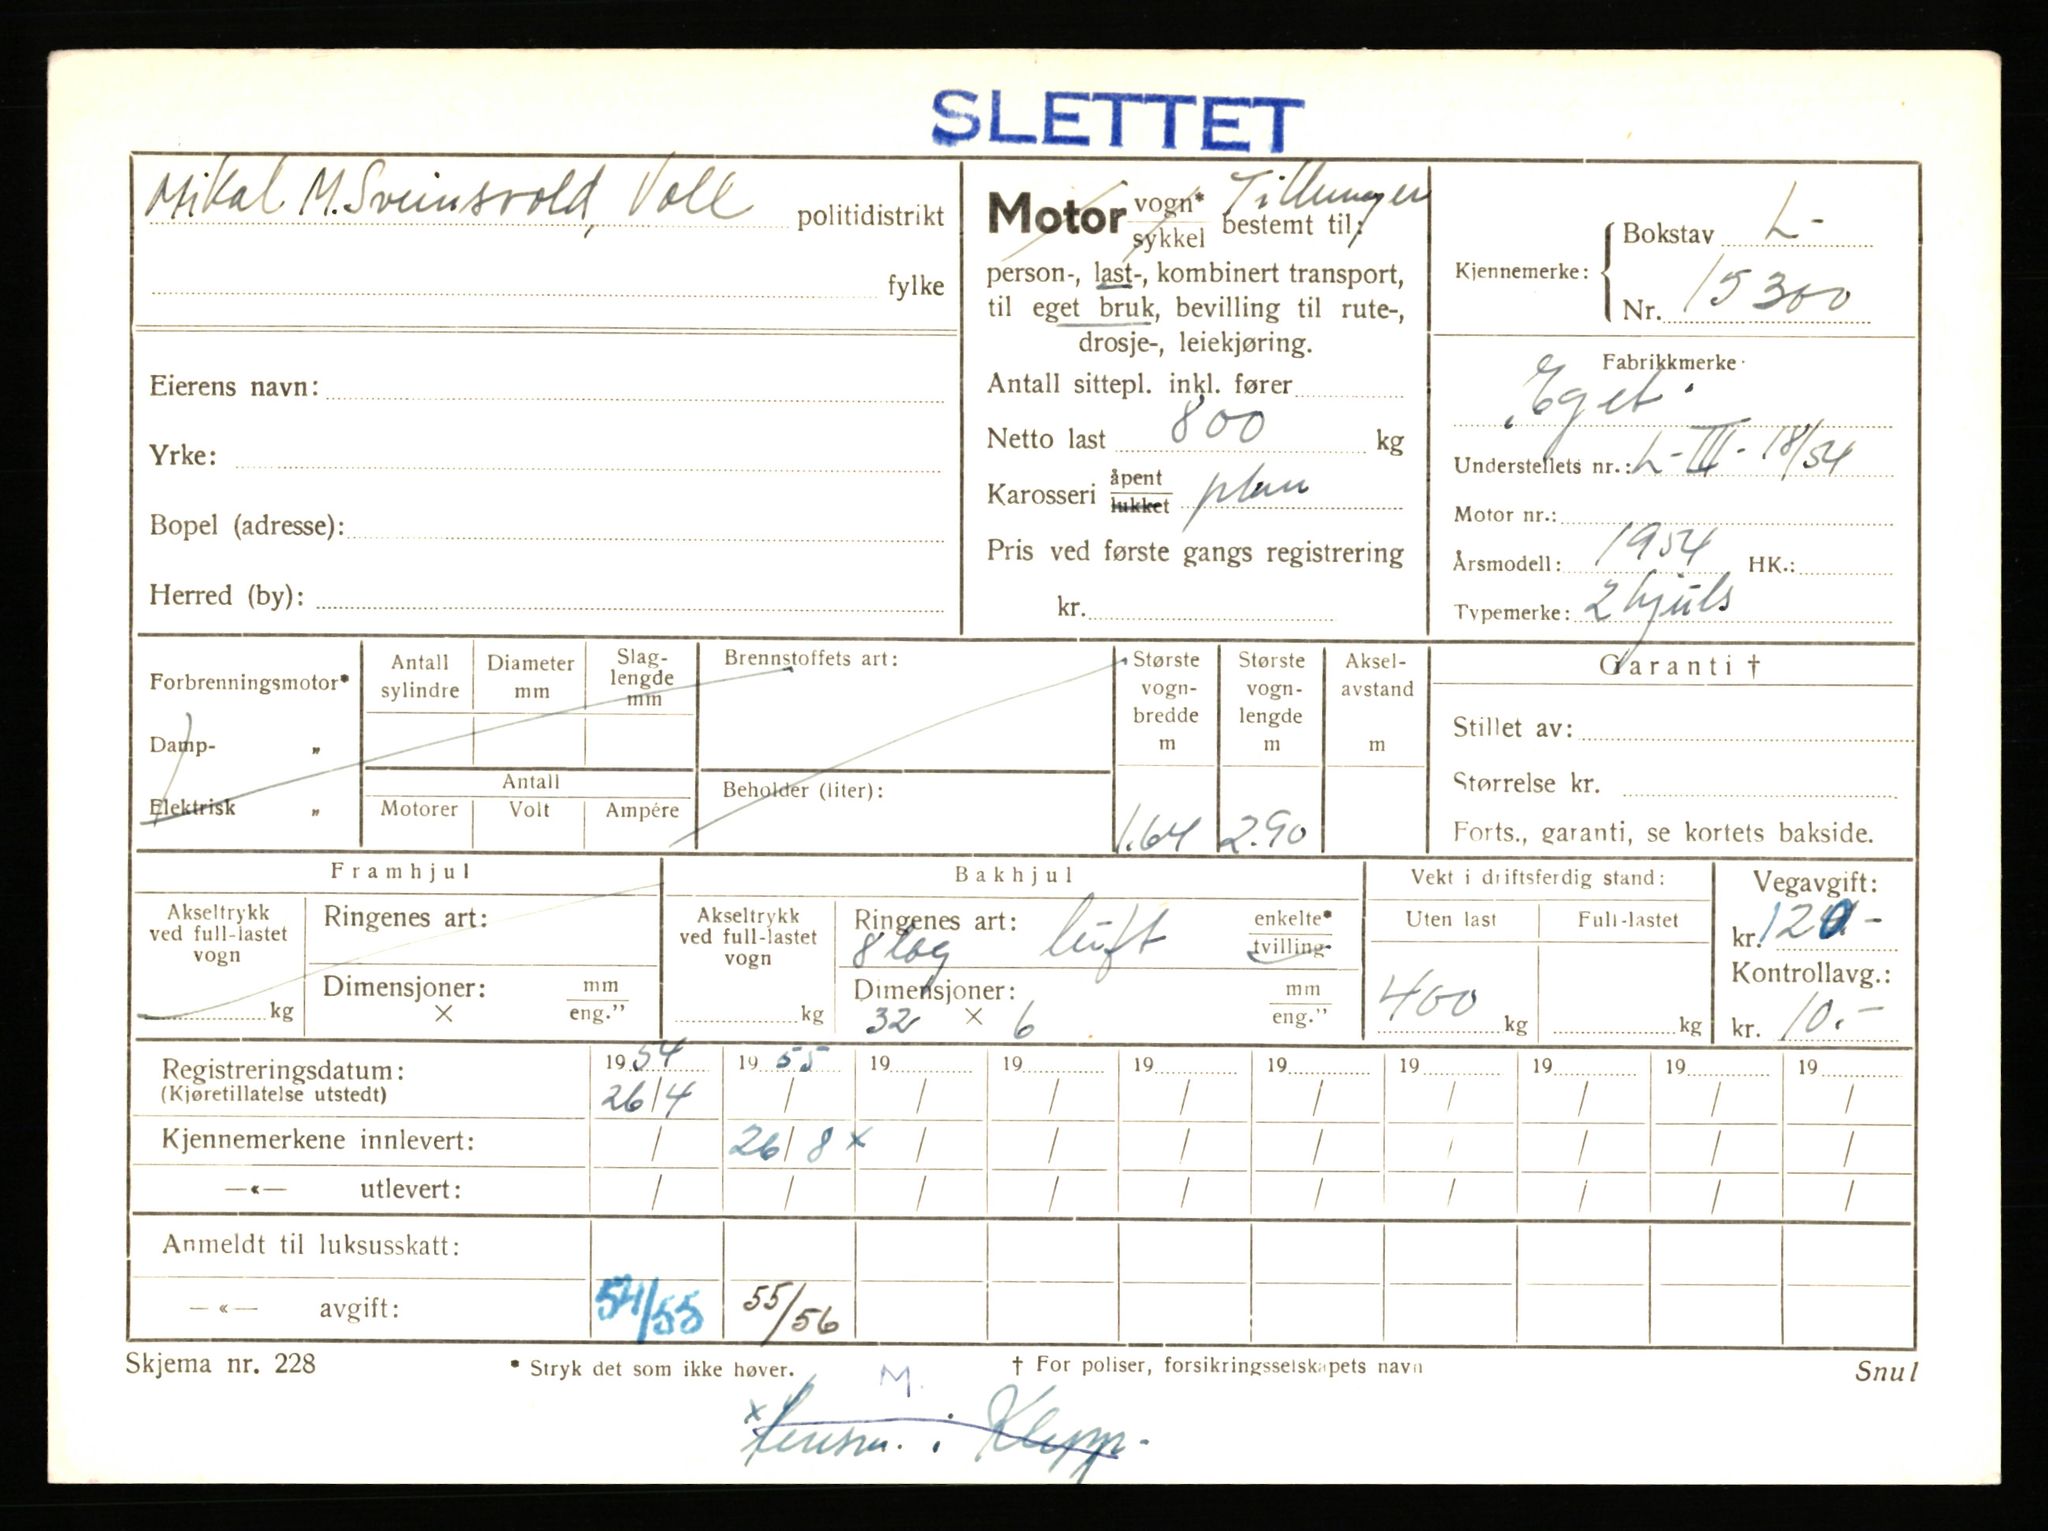 SLETTET
Mikal M. Sveinsvold, Voll politidistrikt
fylke
Eierens navn:
Yrke:
Bopel (adresse):
Herred (by):
Motor vogn* sykkel bestemt til: Tilhenger
person-, last-, kombinert transport,
til eget bruk, bevilling til rute-,
drosje-, leiekjøring.
Antall sittepl. inkl. fører
Netto last 800 kg
Karosseri åpent lukket plan
Pris ved første gangs registrering
kr.
Kjennemerke: Bokstav L-
Nr. 15300
Fabrikkmerke
"Eget"
Understellets nr.: L-III-18/54
Motor nr.:
Årsmodell: 1954 HK.:
Typemerke: 2 hjuls
Garanti †
Stillet av:
Størrelse kr.
Forts., garanti, se kortets bakside.
Forbrenningsmotor*
Damp- „
Elektrisk „
Antall sylindre Diameter mm Slag-lengde mm
Antall
Motorer Volt Ampére
Brennstoffets art:
Beholder (liter):
Største vogn-bredde m 1.64
Største vogn-lengde m 2.90
Aksel-avstand m
Framhjul
Akseltrykk ved full-lastet vogn kg
Ringenes art:
Dimensjoner: × mm eng.”
Bakhjul
Akseltrykk ved full-lastet vogn kg
Ringenes art: 8 lag luft enkelte* tvilling-
Dimensjoner: 32 × 6 mm eng.”
Vekt i driftsferdig stand:
Uten last Full-lastet
400 kg kg
Vegavgift:
kr. 120.-
Kontrollavg.:
kr. 10.-
Registreringsdatum: 1954 1955 19 19 19 19 19 19 19 19
(Kjøretillatelse utstedt) 26/4 / / / / / / / / /
Kjennemerkene innlevert: / 26/8 x / / / / / / / /
—«— utlevert: / / / / / / / / / /
Anmeldt til luksusskatt:
—«— avgift: 54/55 55/56
Skjema nr. 228 * Stryk det som ikke høver. † For poliser, forsikringsselskapets navn Snul
M.
x lensm. i Klepp.